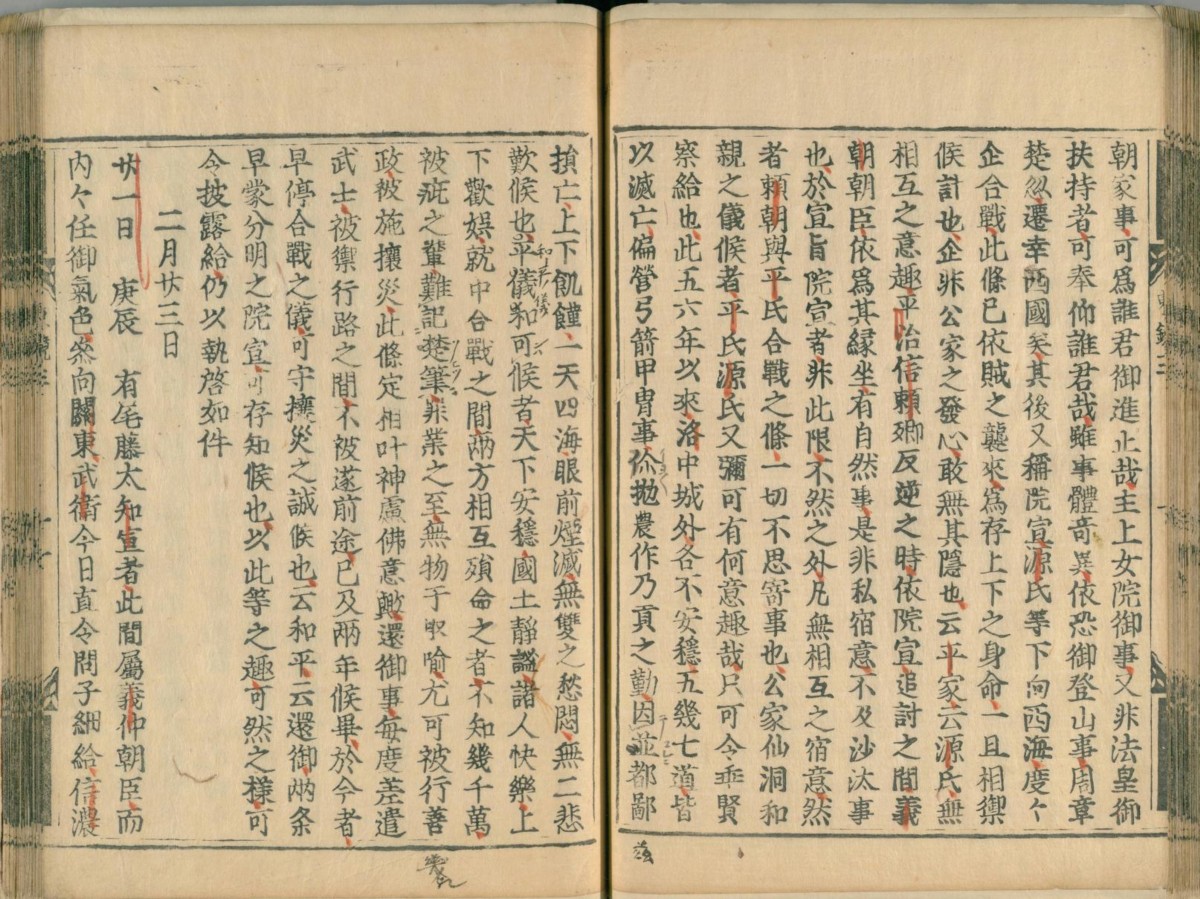 朝家事可爲誰君御進止哉主上女院御事又非法皇御
扶持者可奉仰誰君哉雖事體奇異依恐御登山事周章
楚忽遷幸西國矣其後又稱院宣源氏等下向西海度々
企合戰此條已依賊之襲來爲存上下之身命一且相禦
候計也企非公家之發心敢無其隱也云平家云源氏無
相互之意趣平治信賴卿反逆之時依院宣追討之間義
朝朝臣依爲其緣坐有自然事是非私宿意不及沙汰事
也於宣旨院宣者非此限不然之外凡無相互之宿意然
者賴朝與平氏合戰之條一切不思寄事也公家仙洞和
親之儀候者平氏源氏又彌可有何意趣哉只可令乖賢
察給也此五六年以來洛中城外各不安穩五幾七道皆
以滅亡偏營弓箭甲冑事㑒抛農作乃貢之勤因並都鄙
損亡上下飢饉一天四海眼前煙滅無雙之愁悶無二悲
歎候也平儀和可候者天下安穩國土靜謐諸人快樂上
下歡娯就中合戰之間兩方相互殞命之者不知幾千萬
被疵之輩難記楚筆罪業之至無物于取喻尤可被行善
政被施攘災此條定相叶神慮佛意歟還御事每度差遣
武士被禦行路之間不被遂前途已及兩年候畢於今者
早停合戰之儀可守攘災之誠候也云和平云還御兩条
早蒙分明之院宣可存知候也以此等之趣可然之様可
令披露給仍以執啓如件
二月廿三日
廿一日 庚辰 有尾藤太知宣者此間屬義仲朝臣而
内々任御氣色參向關東武衛今日直令問子細給信濃